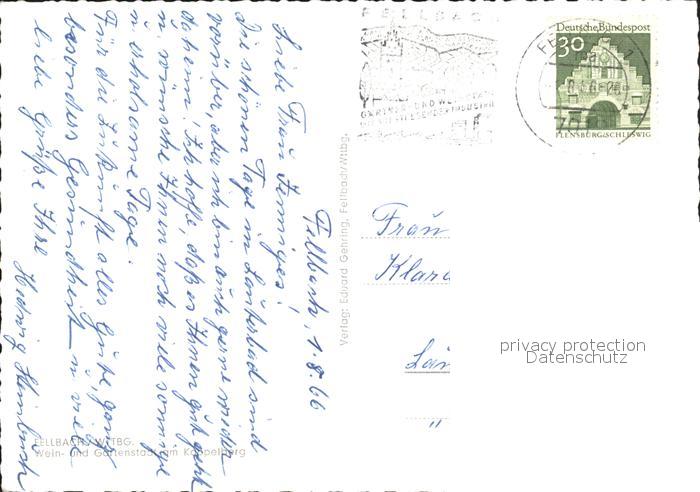 Fellbach, 1.8.66
Liebe Frau Jenniges!
Die schönen Tage in Lauterbad sind
vorüber, aber ich bin auch gerne wieder
daheim. Ich hoffe, daß es Ihnen gut geht
u. wünsche Ihnen noch viele sonnige
u. erholsame Tage.
Für die Zukunft alles Gute, ganz
besonders Gesundheit u. viele
liebe Grüße Ihre Hedwig
FELLBACH/WTTBG.
Wein- und Gartenstadt am Kappelberg
Verlag: Eduard Gehring, Fellbach/Wttbg.
FELLBACH
Deutsche Bundespost
30
FLENSBURG/SCHLESWIG
Frau
Klara
"
privacy protection
Datenschutz